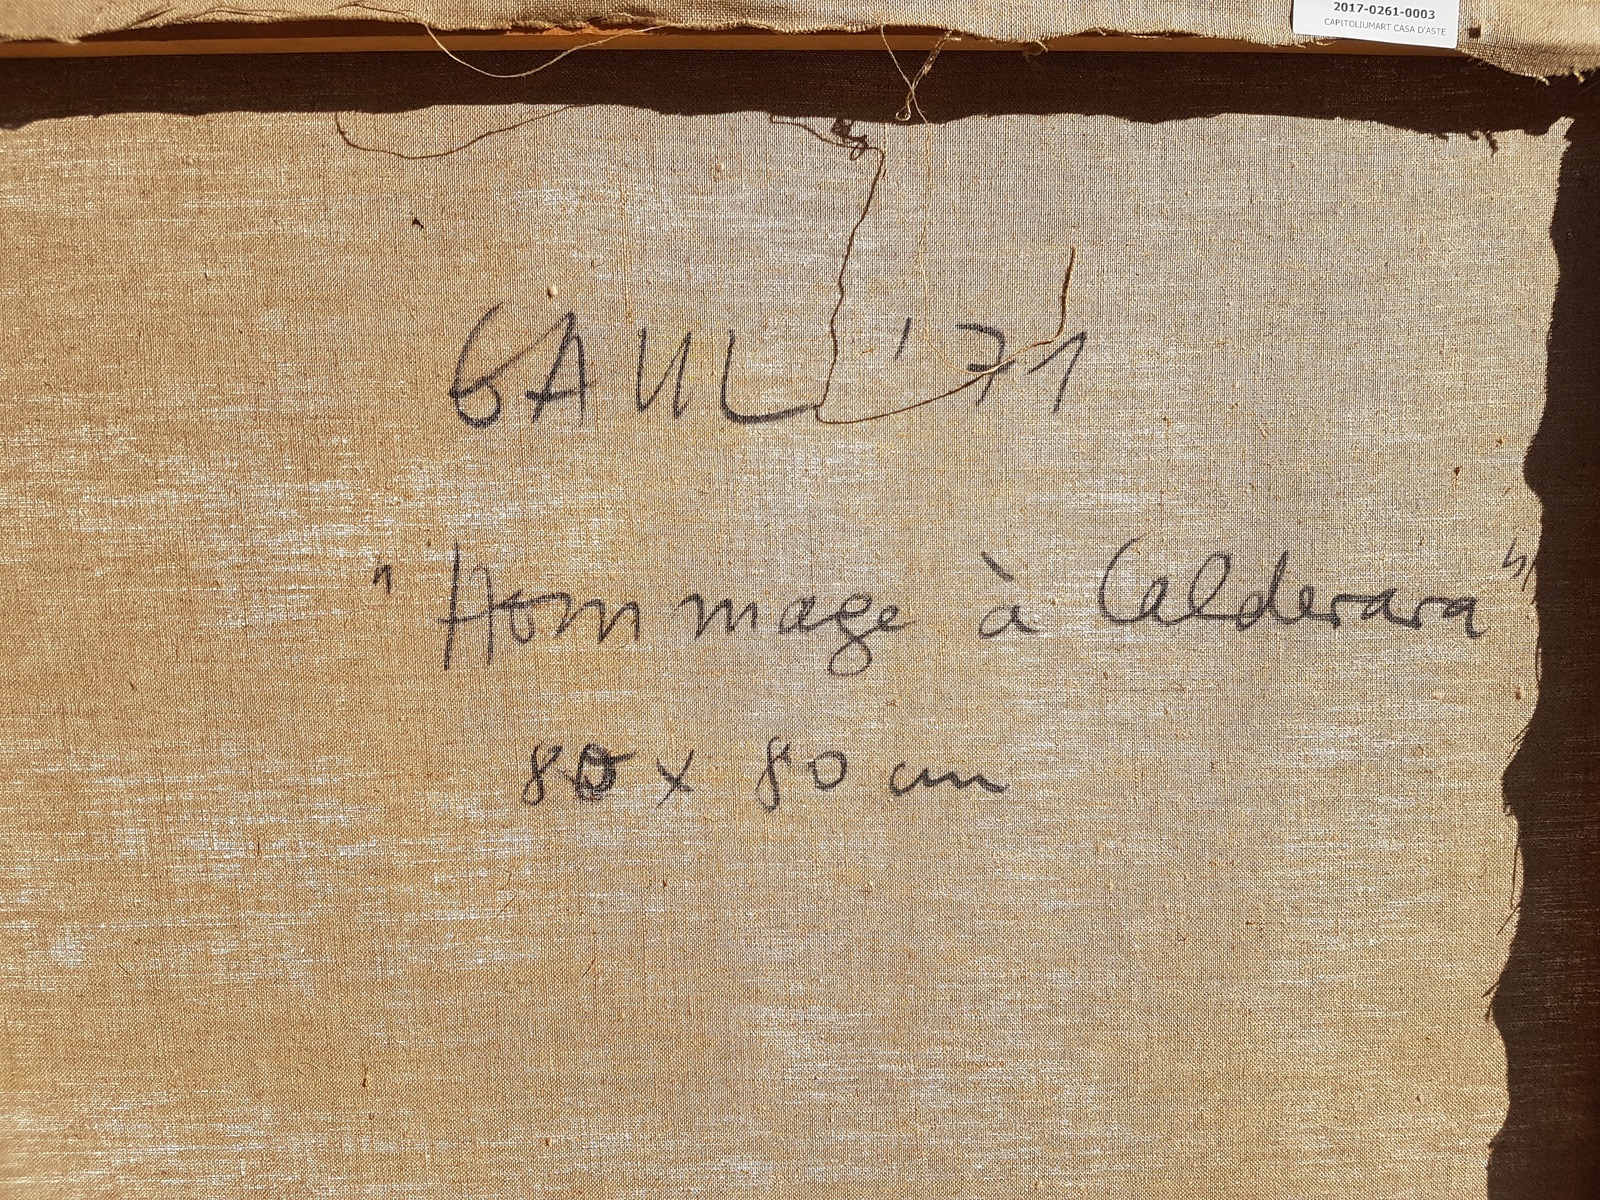 2017-0261-0003
CAPITOLIUMART CASA D'ASTE
GAUL '71
"Hommage à Calderara"
80 x 80 cm